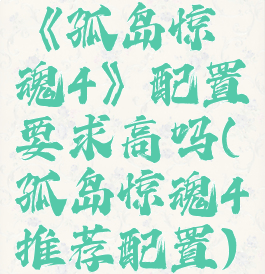 《孤岛惊
魂4》配置
要求高吗(
孤岛惊魂4
推荐配置)